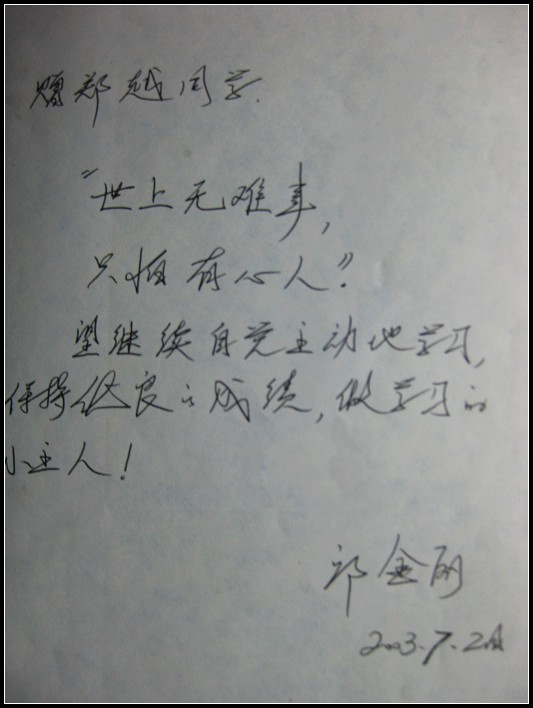 赠郑越同学.
"世上无难事,
只怕有心人"。
望继续自觉主动地学习,
保持优良的成绩,做学习的
小主人!
金丽
2003.7.2